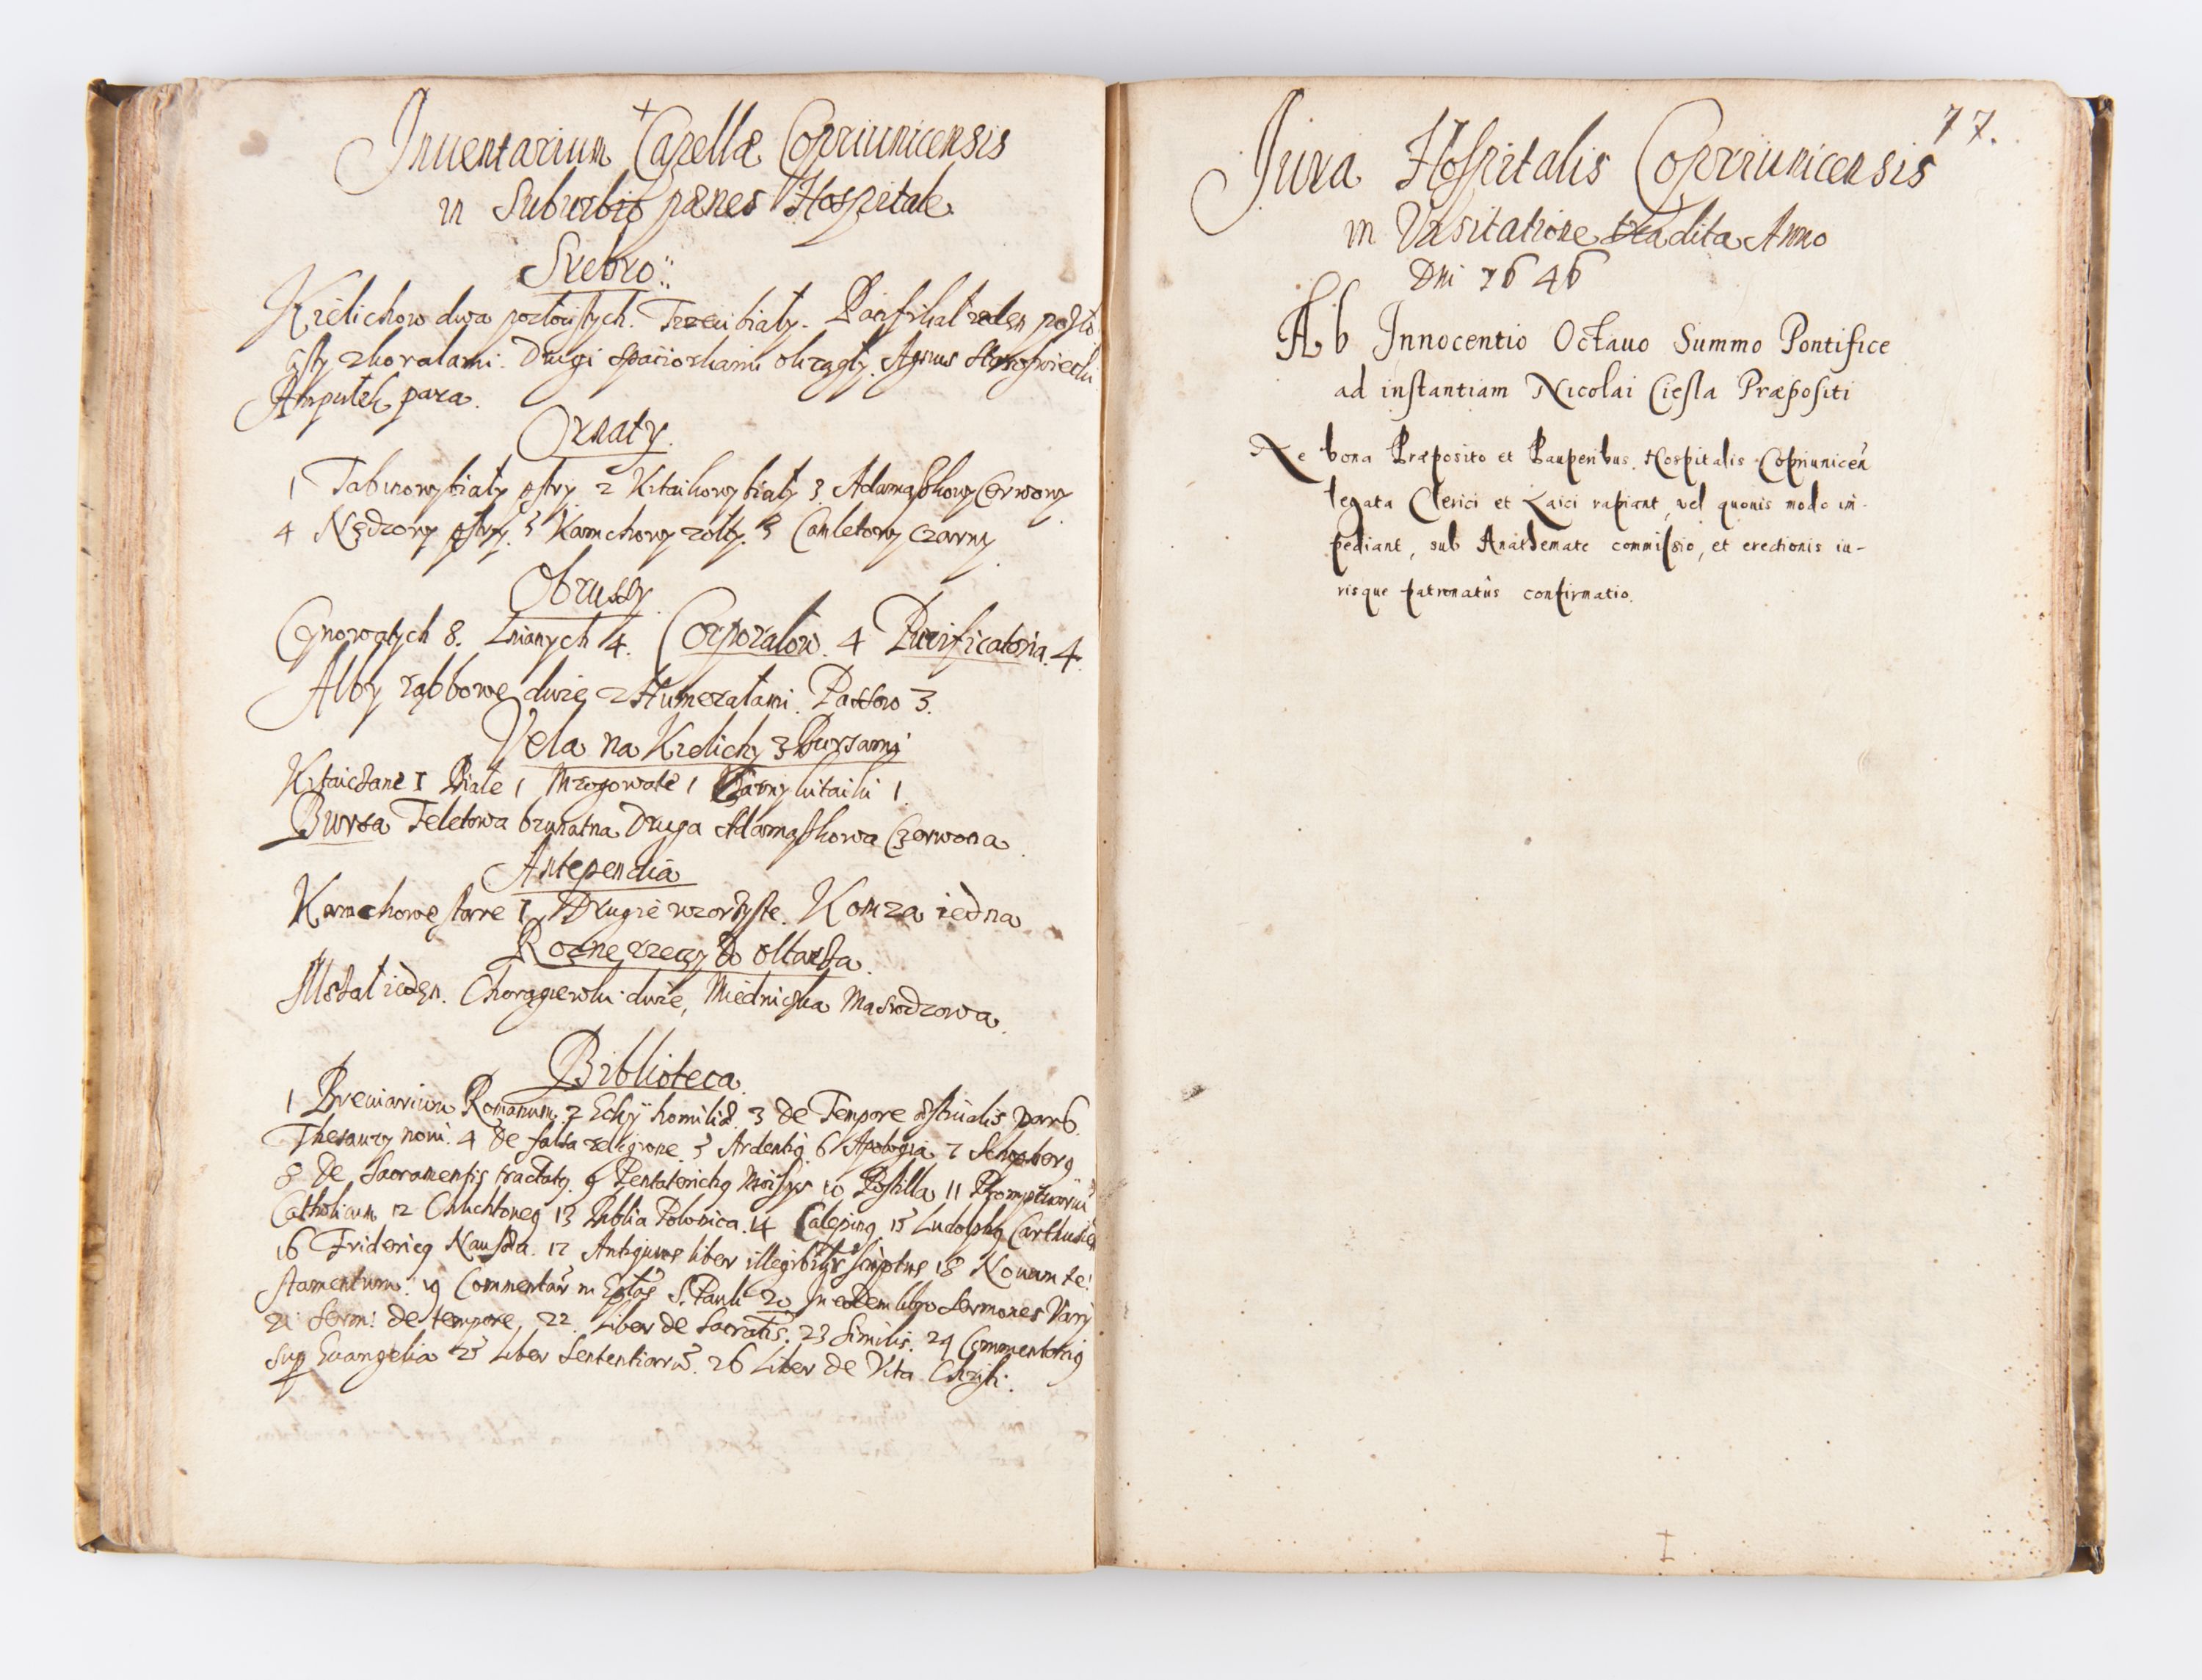 Inuentarium Capellæ Copriunicensis
in Suburbio pænes Hospitale
Srebro
Kielichow dwa pozłoistych. Trzeci biały. Pacifikał ieden pozło
isty z koralami. Drugi spaciorkami okrągły. Agnus
Ampułek para.
Ornaty
1 Tabinowy biały pstry 2 Kitaikowy biały 3 Adamaszkowy Czerwony
4 Nędzowy pstry. 5 Kamchowy zołty. 5 Camletowy czarny
Obrussy
Cynowatych 8. Lnianych 4. Corporałow. 4 Purificatoria. 4.
Alby rąbkowe dwie z Humerałami. Passow 3.
Vela na Kielichy z Bursami
Kitaiczane 1 Białe 1 Mrozowate 1 Czarny kitaiki 1.
Bursa Teletowa brunatna Druga Adamaszkowa Czerwona
Antependia
Kamchowe stare 1 Drugie wzorzyste. Komza iedna
Rozne rzeczy do oltarza
Mszał ieden. Chorągiewki dwie, Miedniczka Mosiodzowa
Biblioteca
1 Breuiarium Romanum. 2 Eckÿ homiliæ. 3 de Tempore æstiualis pars
Thesaury noui. 4 De falsa religione. 5 Ardentig 6 Apologia 7
8 De Sacramentis tractatg. 9 Pentateuchg Moisys 10 Postilla 11 Promptuariũ
Catholicum 12 Clichtoueg 13 Biblia Polonica. 14 Caleping 15 Ludolphg Carthusieñ
16 Fridericg Nausea. 17 Antiquus liber illegibilis scriptus 18 Nouum te:
stamentum. 19 Commentar in Eptas S. Pauli 20 In eodem libro Sermones Varÿ
21 Serm: de tempore, 22. Liber de Sacratis. 23 Similis. 24 Commentarig
sup Euangelia 25 Liber Sententiarũ. 26 Liber de Vita Christi.
77.
Jura Hospitalis Copriunicensis
in Visitatione tradita Anno
Dni 1646
Ab Innocentio Octauo Summo Pontifice
ad instantiam Nicolai Ciesla Præpositi
Ne bona Præposito et Pauperibus Hospitalis Copriuniceñ
legata Clerici et Laici rapiant, vel quouis modo im-
pediant, sub Anathemate commissio, et erectionis iu-
risque patronatûs confirmatio.